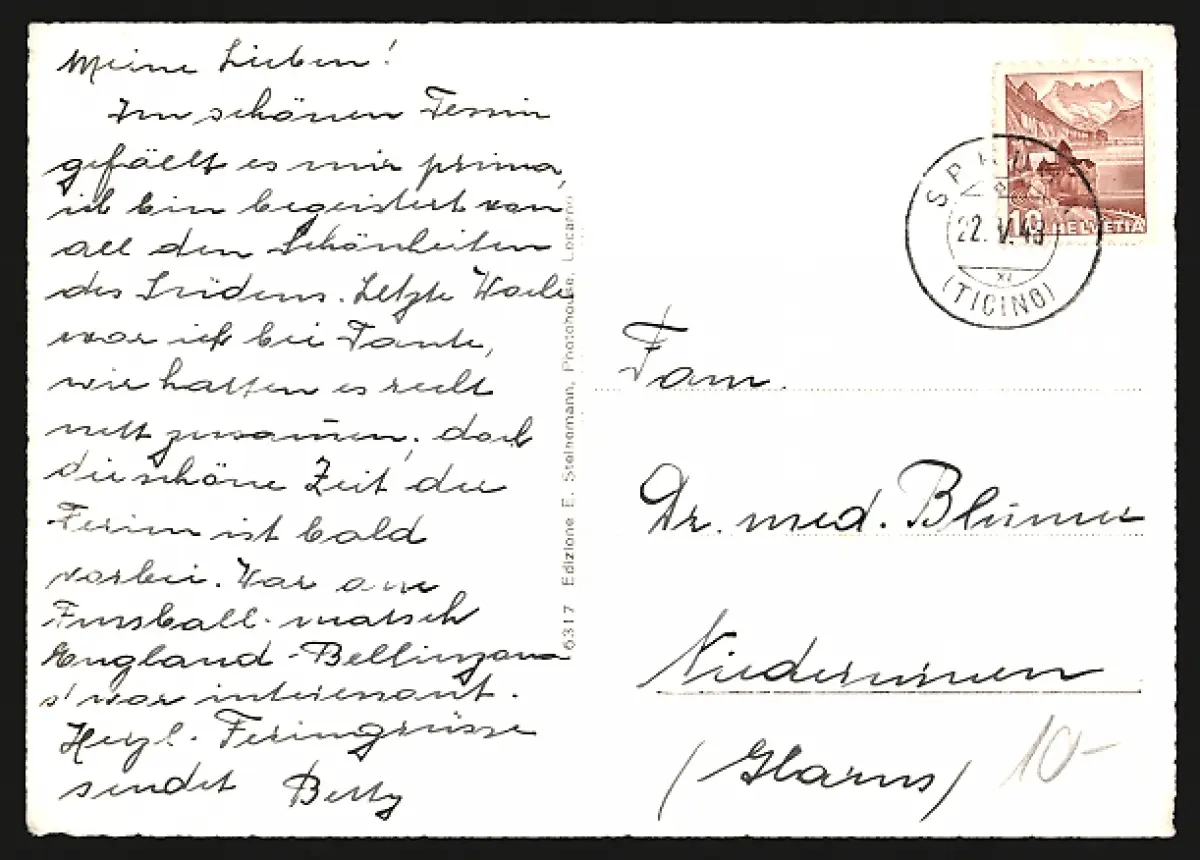 Meine Lieben!
Im schönen Tessin
gefällt es mir prima,
ich bin begeistert von
all den Schönheiten
des Südens. Letzte Woche
war ich bei Tante,
wir hatten es recht
nett zusammen, doch
die schöne Zeit der
Ferien ist bald
vorbei. War am
Fussball-match
England-Bellinzona
s'war interessant.
Herzl. Feriengrüsse
sendet Betty
6317 Edizione E. Steinemann, Photohouse, Locarno
22.V.48
XI
(TICINO)
10 HELVETIA
Fam.
Dr. med. Blumer
Niederurnen
(Glarus)
10-